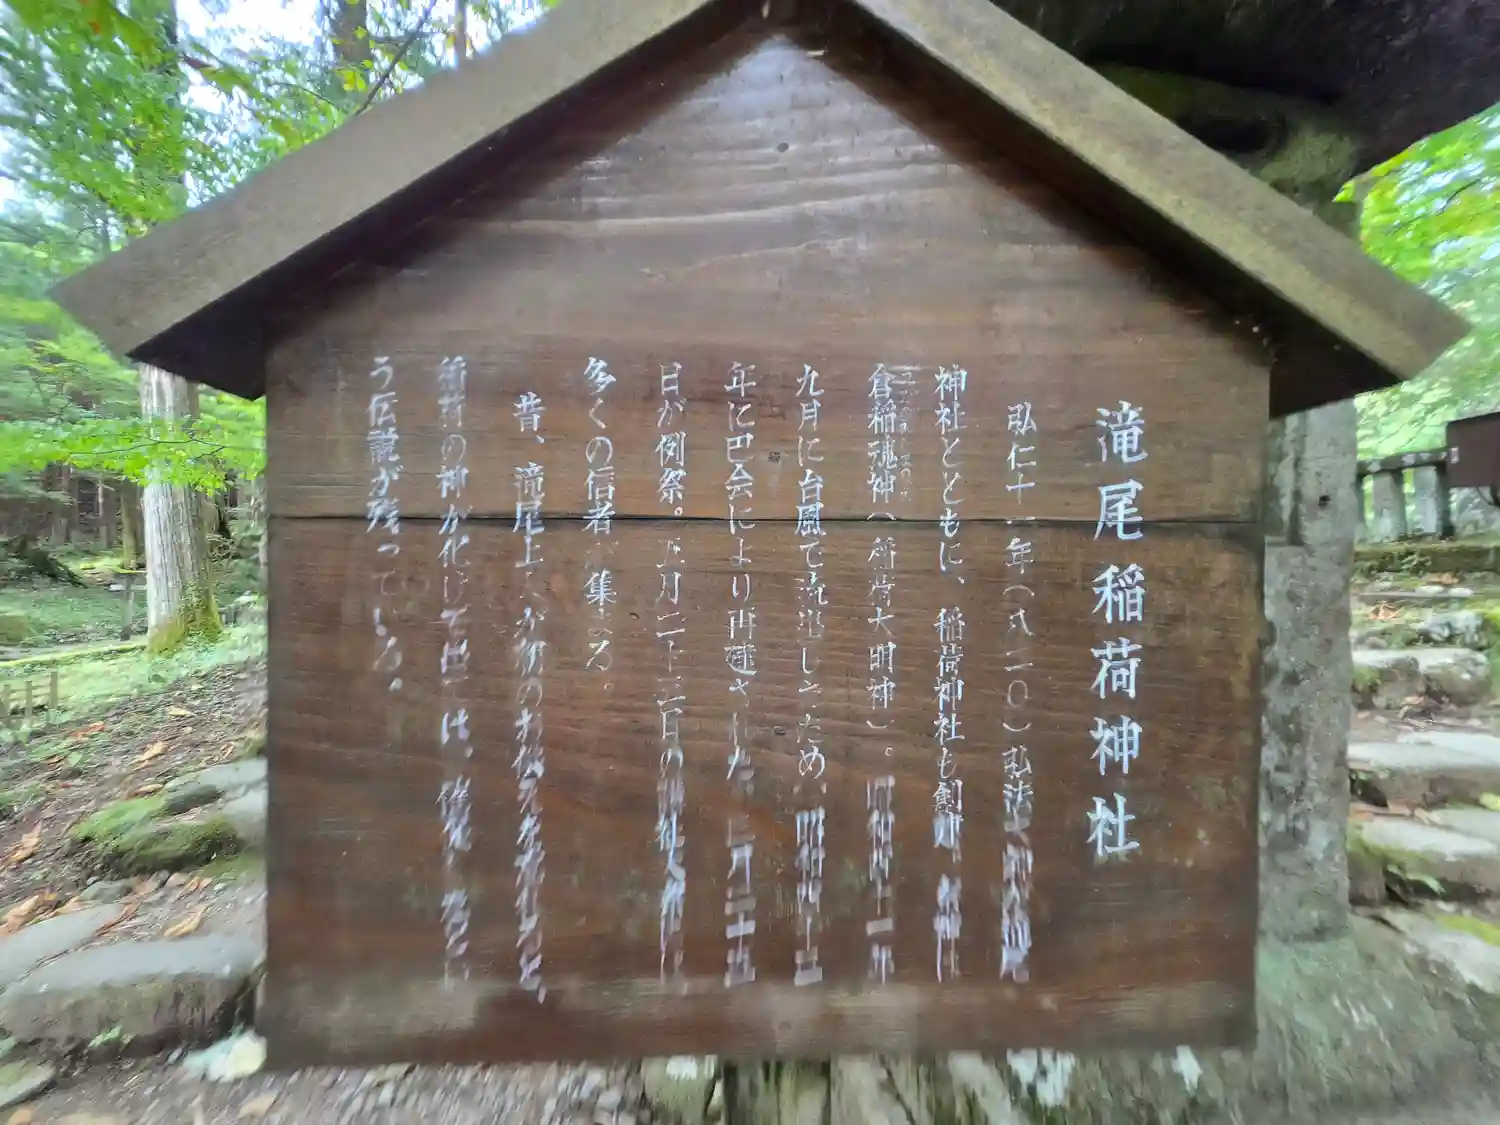 滝尾稲荷神社
弘仁十一年（八二〇）弘法大師が滝尾
神社とともに、稲荷神社も創建、祭神は
倉稲魂神（稲荷大明神）。昭和四十一年
九月に台風で流出したため、昭和四十三
年に巴会により再建された。三月二十五
日が例祭。五月二十三日の
多くの信者が集まる。
昔、滝尾上人が朝のお供えを
稲荷の神が化けて
う伝説が残っている。